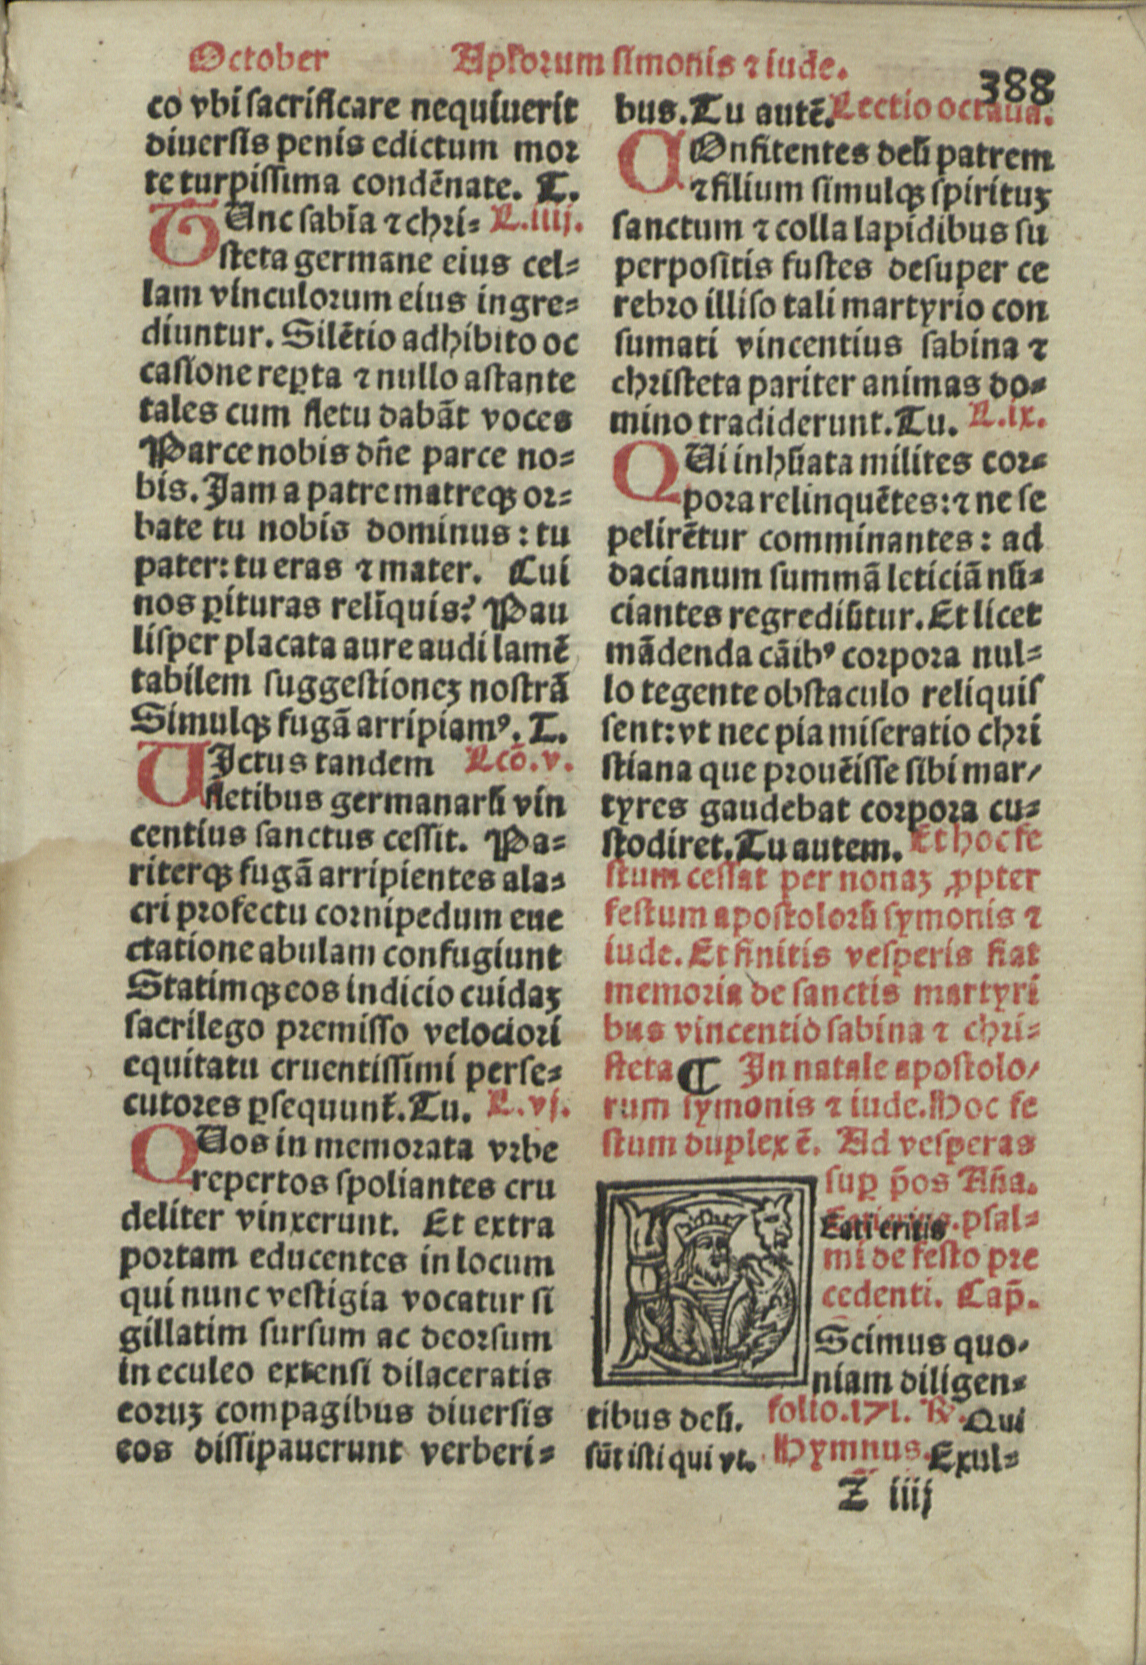 October Aplorum simonis ⁊ iude.
388
co vbi sacrificare nequiuerit
diuersis penis edictum mor
te turpissima condēnate. T.
TUnc sabīa ⁊ chri= L.iiij.
steta germane eius cel=
lam vinculorum eius ingre=
diuntur. Silētio adhibito oc
casione reꝑta ⁊ nullo astante
tales cum fletu dabāt voces
Parce nobis dn̄e parce no=
bis. Jam a patre matreqꝫ or=
bate tu nobis dominus: tu
pater: tu eras ⁊ mater. Cui
nos ꝑituras relīquis? Pau
lisper placata aure audi lamē
tabilem suggestionez nostrā
Simulqꝫ fugā arripiamꝰ. T.
UJctus tandem Lcō.v.
fletibus germanarū vin
centius sanctus cessit. Pa=
riterqꝫ fugā arripientes ala=
cri profectu cornipedum eue
ctatione abulam confugiunt
Statimqꝫ eos indicio cuidaꝫ
sacrilego premisso velociori
equitatu cruentissimi perse=
cutores ꝑsequunt̄. Tu. L.vj.
QUos in memorata vrbe
repertos spoliantes cru
deliter vinxerunt. Et extra
portam educentes in locum
qui nunc vestigia vocatur si
gillatim sursum ac deorsum
in eculeo extensi dilaceratis
eoruꝫ compagibus diuersis
eos dissipauerunt verberi=
bus. Tu autē. Lectio octaua.
COnfitentes deū patrem
⁊ filium simulqꝫ spirituꝫ
sanctum ⁊ colla lapidibus su
perpositis fustes desuper ce
rebro illiso tali martyrio con
sumati vincentius sabina ⁊
christeta pariter animas do=
mino tradiderunt. Tu. L.ix.
QUi inhūata milites cor=
pora relinquētes: ⁊ ne se
pelirētur comminantes: ad
dacianum summā leticiā nū=
ciantes regrediūtur. Et licet
mādenda cāibꝰ corpora nul=
lo tegente obstaculo reliquis
sent: vt nec pia miseratio chri
stiana que prouēisse sibi mar/
tyres gaudebat corpora cu=
stodiret. Tu autem. Et hoc fe
stum cessat per nonaꝫ ꝓpter
festum apostolorū symonis ⁊
iude. Et finitis vesperis fiat
memoria de sanctis martyri
bus vincentio sabina ⁊ chri=
steta ¶ In natale apostolo/
rum symonis ⁊ iude. Hoc fe
stum duplex ē. Ad vesperas
suꝑ p̄os Aña.
Eati eritis psal=
mi de festo pre
cedenti. Cap̄.
Scimus quo=
niam diligen=
tibus deū. folio.171. ℟. Qui
sūt isti qui vt. Hymnus. Exul=
Z iiij